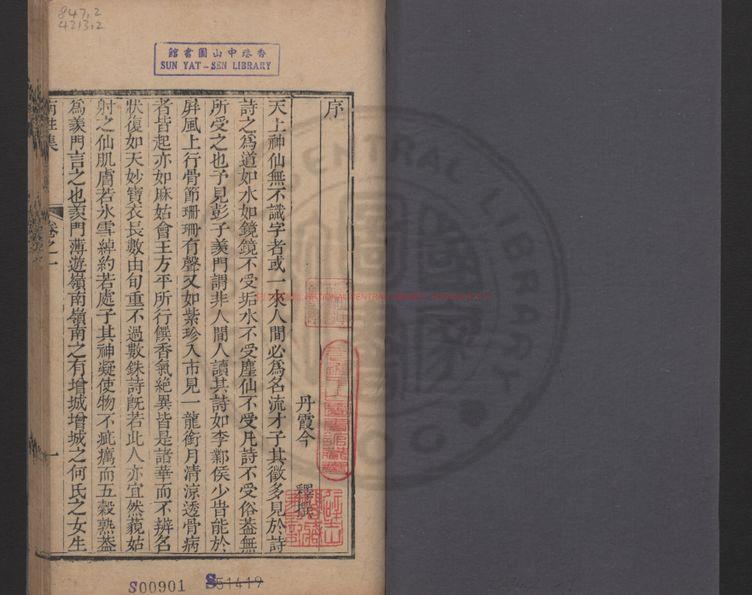 847.2
4213.2
香港中山圖書館
SUN YAT-SEN LIBRARY
序
丹霞今 釋撰
天上神仙無不識字者或一來人間必為名流才子其徵多見於詩
詩之為道如水如鏡鏡不受垢水不受塵仙不受凡詩不受俗葢無
所受之也予見彭子羨門謂非人間人讀其詩如李鄴侯少時能於
屏風上行骨節珊珊有聲又如紫珍入市見一龍銜月清涼透骨病
者皆起亦如麻姑會王方平所行饌香氣絕異皆是諸華而不辨名
狀復如天妙寶衣長數由旬重不過數銖詩旣若此人亦宜然藐姑
射之仙肌膚若氷雪綽約若處子其神凝使物不疵癘而五穀熟葢
為羨門言之也羨門薄遊嶺南嶺南之有增城增城之何氏之女生
南 集 卷之一 一
S00901
S51419
NATIONAL CENTRAL LIBRARY